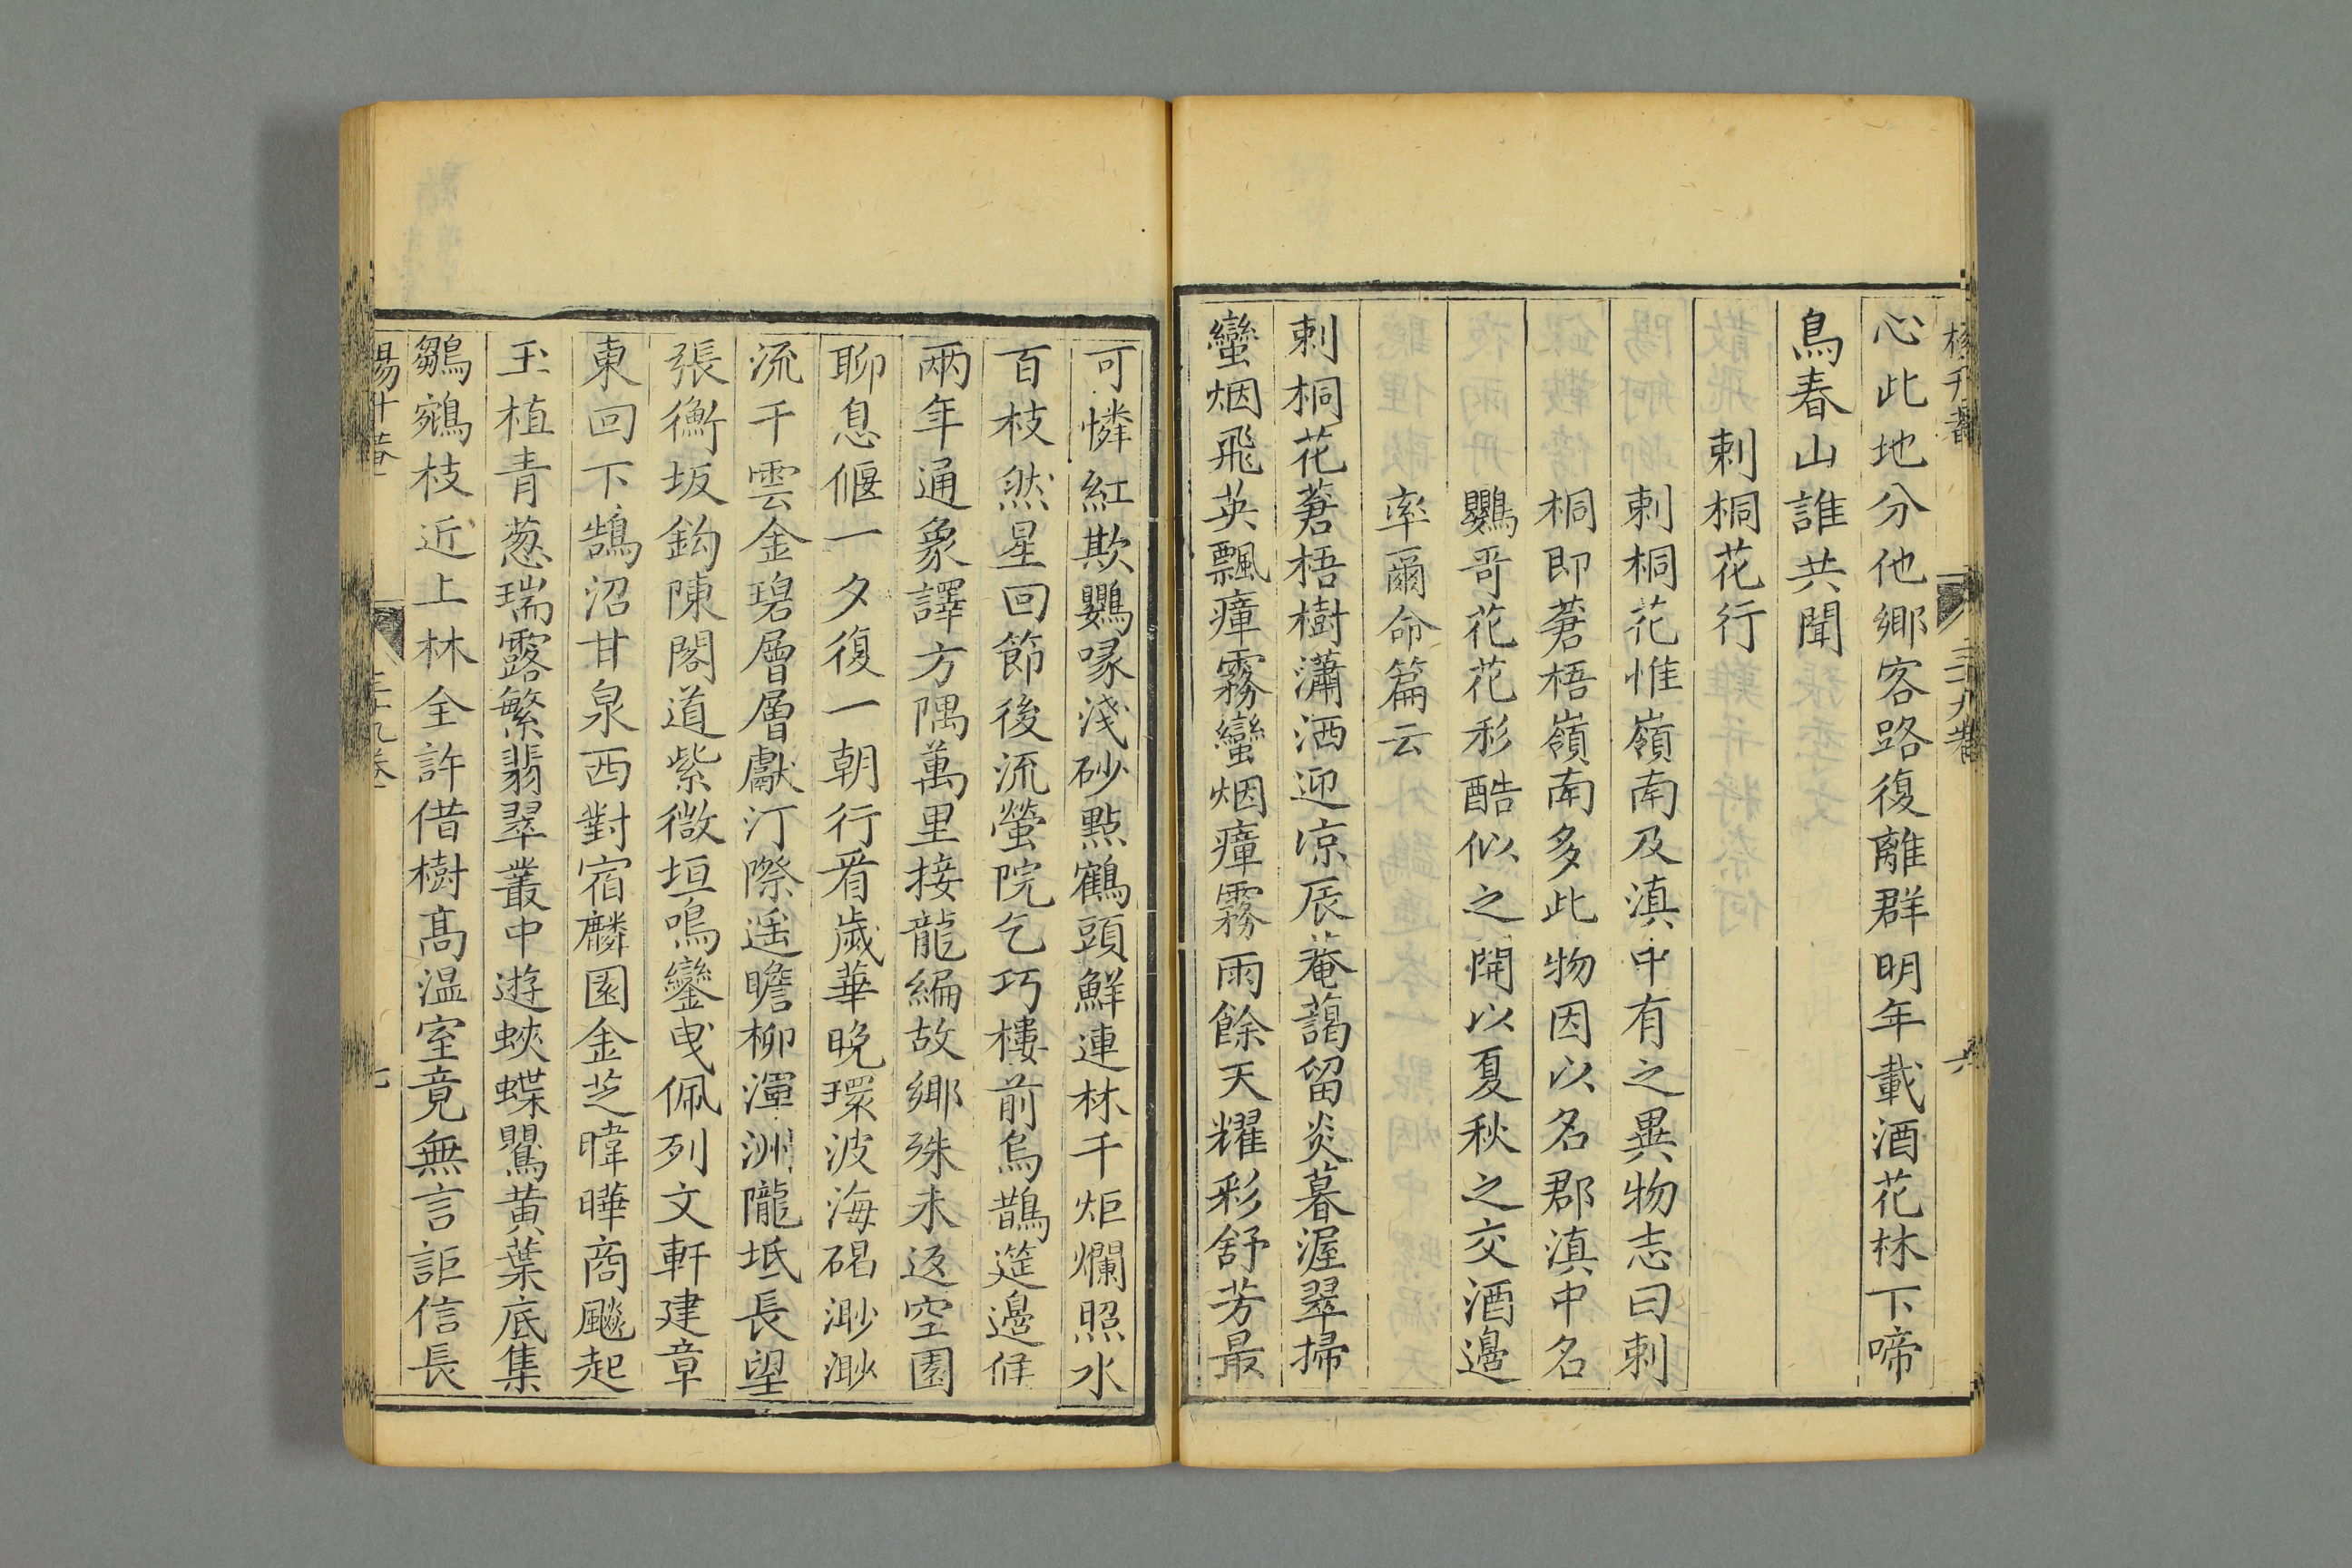 心此地分他鄉客路復離群明年載酒花林下啼
鳥春山誰共聞
刺桐花行
刺桐花惟嶺南及滇中有之異物志曰刺
桐即蒼梧嶺南多此物因以名郡滇中名
鸚哥花花形酷似之開以夏秋之交酒邊
率爾命篇云
刺桐花蒼梧樹瀟洒迎凉辰菴藹留炎暮渥翠掃
蠻烟飛英飄瘴霧蠻烟瘴霧雨餘天耀彩舒芳最
可憐紅欺鸚喙淺砂點鶴頭鮮連林千炬爛照水
百枝然星回節後流螢院乞巧樓前烏鵲筵邊候
兩年通象譯方隅萬里接龍編故鄉殊未返空園
聊息偃一夕復一朝行看歲華晚環波海碣渺渺
流千雲金碧層層獻汀際遥瞻柳渾洲隴坻長望
張衡坂鈎陳閣道紫微垣鳴鑾曳佩列文軒建章
東回下鵠沼甘泉西對宿麟園金芝暐曄商飈起
玉植青葱瑞露繁翡翠叢中遊蛺蝶鸎黄葉底集
鶵鵷枝近上林全許借樹高温室竟無言詎信長
三十九卷
七
三十九卷
六